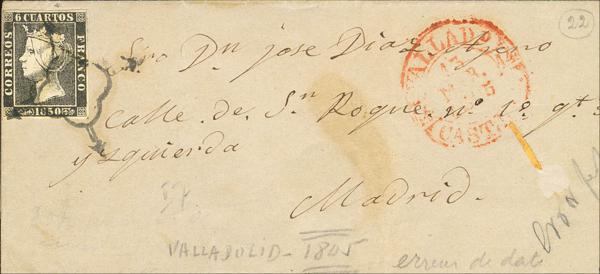 6 CUARTOS
CORREOS
FRANCO
1850
22
Sr. Dn. jose Diaz Agero
calle. de. Sn. Roque. nº 1º. qto
y Yzquierda
Madrid.
VALLADOLID
CAST
57
VALLADOLID - 1805
erreur de date